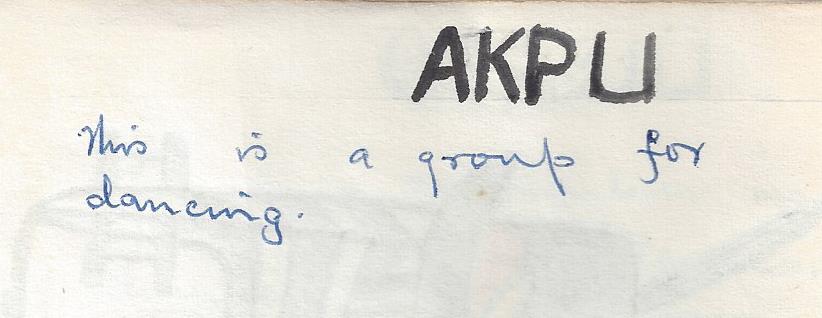 AKPU
This is a group for
dancing.